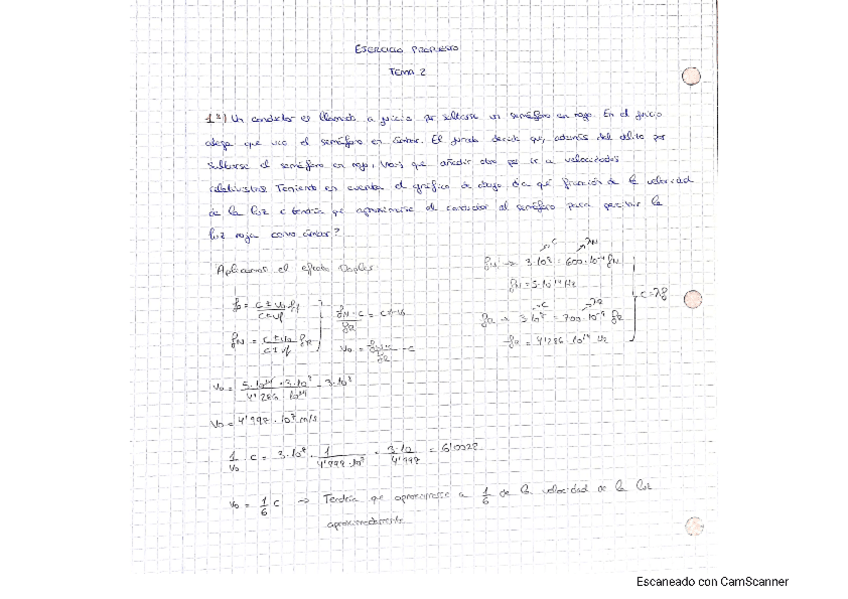 EJERCICIO PROPUESTO
TEMA 2
1º) Un conductor es llamado a juicio por saltarse un semáforo en rojo. En el juicio
alega que vio el semáforo en ámbar. El jurado decide que, además del delito por
saltarse el semáforo en rojo, hay que añadir otro por ir a velocidades
relativistas. Teniendo en cuenta el gráfico de abajo, ¿a qué fracción de la velocidad
de la luz c tendría que aproximarse el conductor al semáforo para percibir la
luz roja como ámbar?
Aplicamos el efecto Doppler
c λN
fN → 3·10⁸ = 600·10⁻⁹ fN
fN = 5·10¹⁴ Hz
c λR
fR → 3·10⁸ = 700·10⁻⁹ fR
fR = 4'286·10¹⁴ Hz
c = λf
fo = c ± vo / c ± vf ff
fN = c ± vo / c ± vf fR
fN · c / fR = c + vo
vo = fN · c / fR - c
vo = 5·10¹⁴ · 3·10⁸ / 4'286 · 10¹⁴ - 3·10⁸
vo = 4'998 · 10⁷ m/s
1/vo c = 3·10⁸ · 1 / 4'998·10⁷ = 3·10 / 4'998 = 6'0028
vo = 1/6 c → Tendría que aproximarse a 1/6 de la velocidad de la luz
aproximadamente
Escaneado con CamScanner